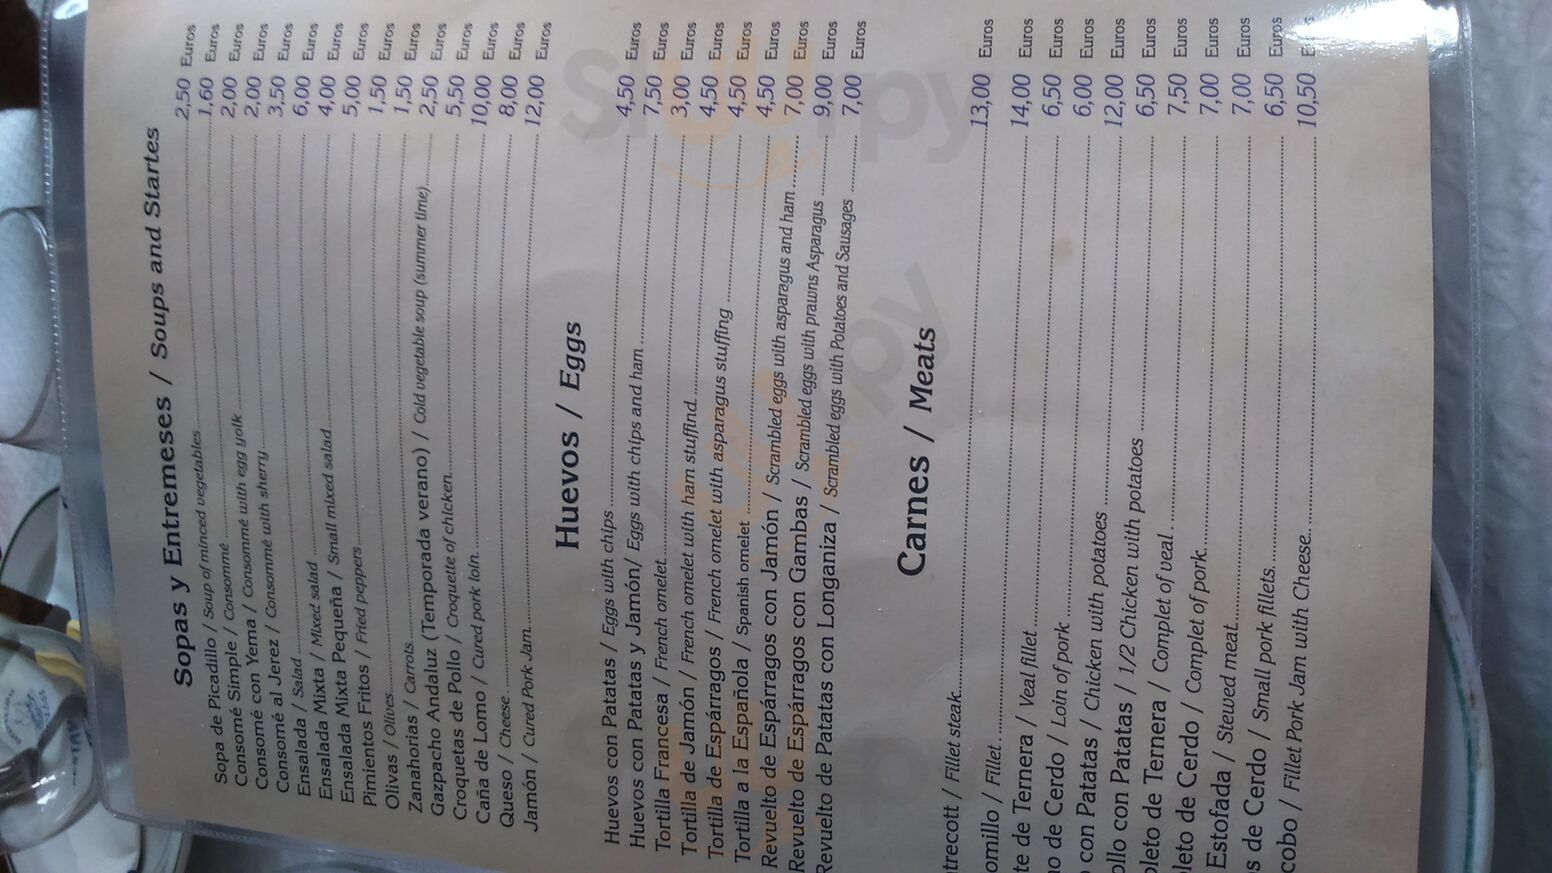 Sopas y Entremeses / Soups and Startes
Sopa de Picadillo / Soup of minced vegetables 2,50 Euros
Consomé Simple / Consommé 1,60 Euros
Consomé con Yema / Consommé with egg yolk 2,00 Euros
Consomé al Jerez / Consommé with sherry 2,00 Euros
Ensalada / Salad 3,50 Euros
Ensalada Mixta / Mixed salad 6,00 Euros
Ensalada Mixta Pequeña / Small mixed salad 4,00 Euros
Pimientos Fritos / Fried peppers 5,00 Euros
Olivas / Olives 1,50 Euros
Zanahorias / Carrots 1,50 Euros
Gazpacho Andaluz (Temporada verano) / Cold vegetable soup (summer time) 2,50 Euros
Croquetas de Pollo / Croquette of chicken 5,50 Euros
Caña de Lomo / Cured pork loin 10,00 Euros
Queso / Cheese 8,00 Euros
Jamón / Cured Pork Jam 12,00 Euros
Huevos / Eggs
Huevos con Patatas / Eggs with chips 4,50 Euros
Huevos con Patatas y Jamón/ Eggs with chips and ham 7,50 Euros
Tortilla Francesa / French omelet 3,00 Euros
Tortilla de Jamón / French omelet with ham stuffind 4,50 Euros
Tortilla de Espárragos / French omelet with asparagus stuffing 4,50 Euros
Tortilla a la Española / Spanish omelet 4,50 Euros
Revuelto de Espárragos con Jamón / Scrambled eggs with asparagus and ham 7,00 Euros
Revuelto de Espárragos con Gambas / Scrambled eggs with prawns Asparagus 9,00 Euros
Revuelto de Patatas con Longaniza / Scrambled eggs with Potatoes and Sausages 7,00 Euros
Carnes / Meats
trecott / Fillet steak 13,00 Euros
omillo / Fillet 14,00 Euros
te de Ternera / Veal fillet 6,50 Euros
o de Cerdo / Loin of pork 6,00 Euros
con Patatas / Chicken with potatoes 12,00 Euros
ollo con Patatas / 1/2 Chicken with potatoes 6,50 Euros
pleto de Ternera / Complet of veal 7,50 Euros
leto de Cerdo / Complet of pork 7,00 Euros
Estofada / Stewed meat 7,00 Euros
s de Cerdo / Small pork fillets 6,50 Euros
cobo / Fillet Pork Jam with Cheese 10,50